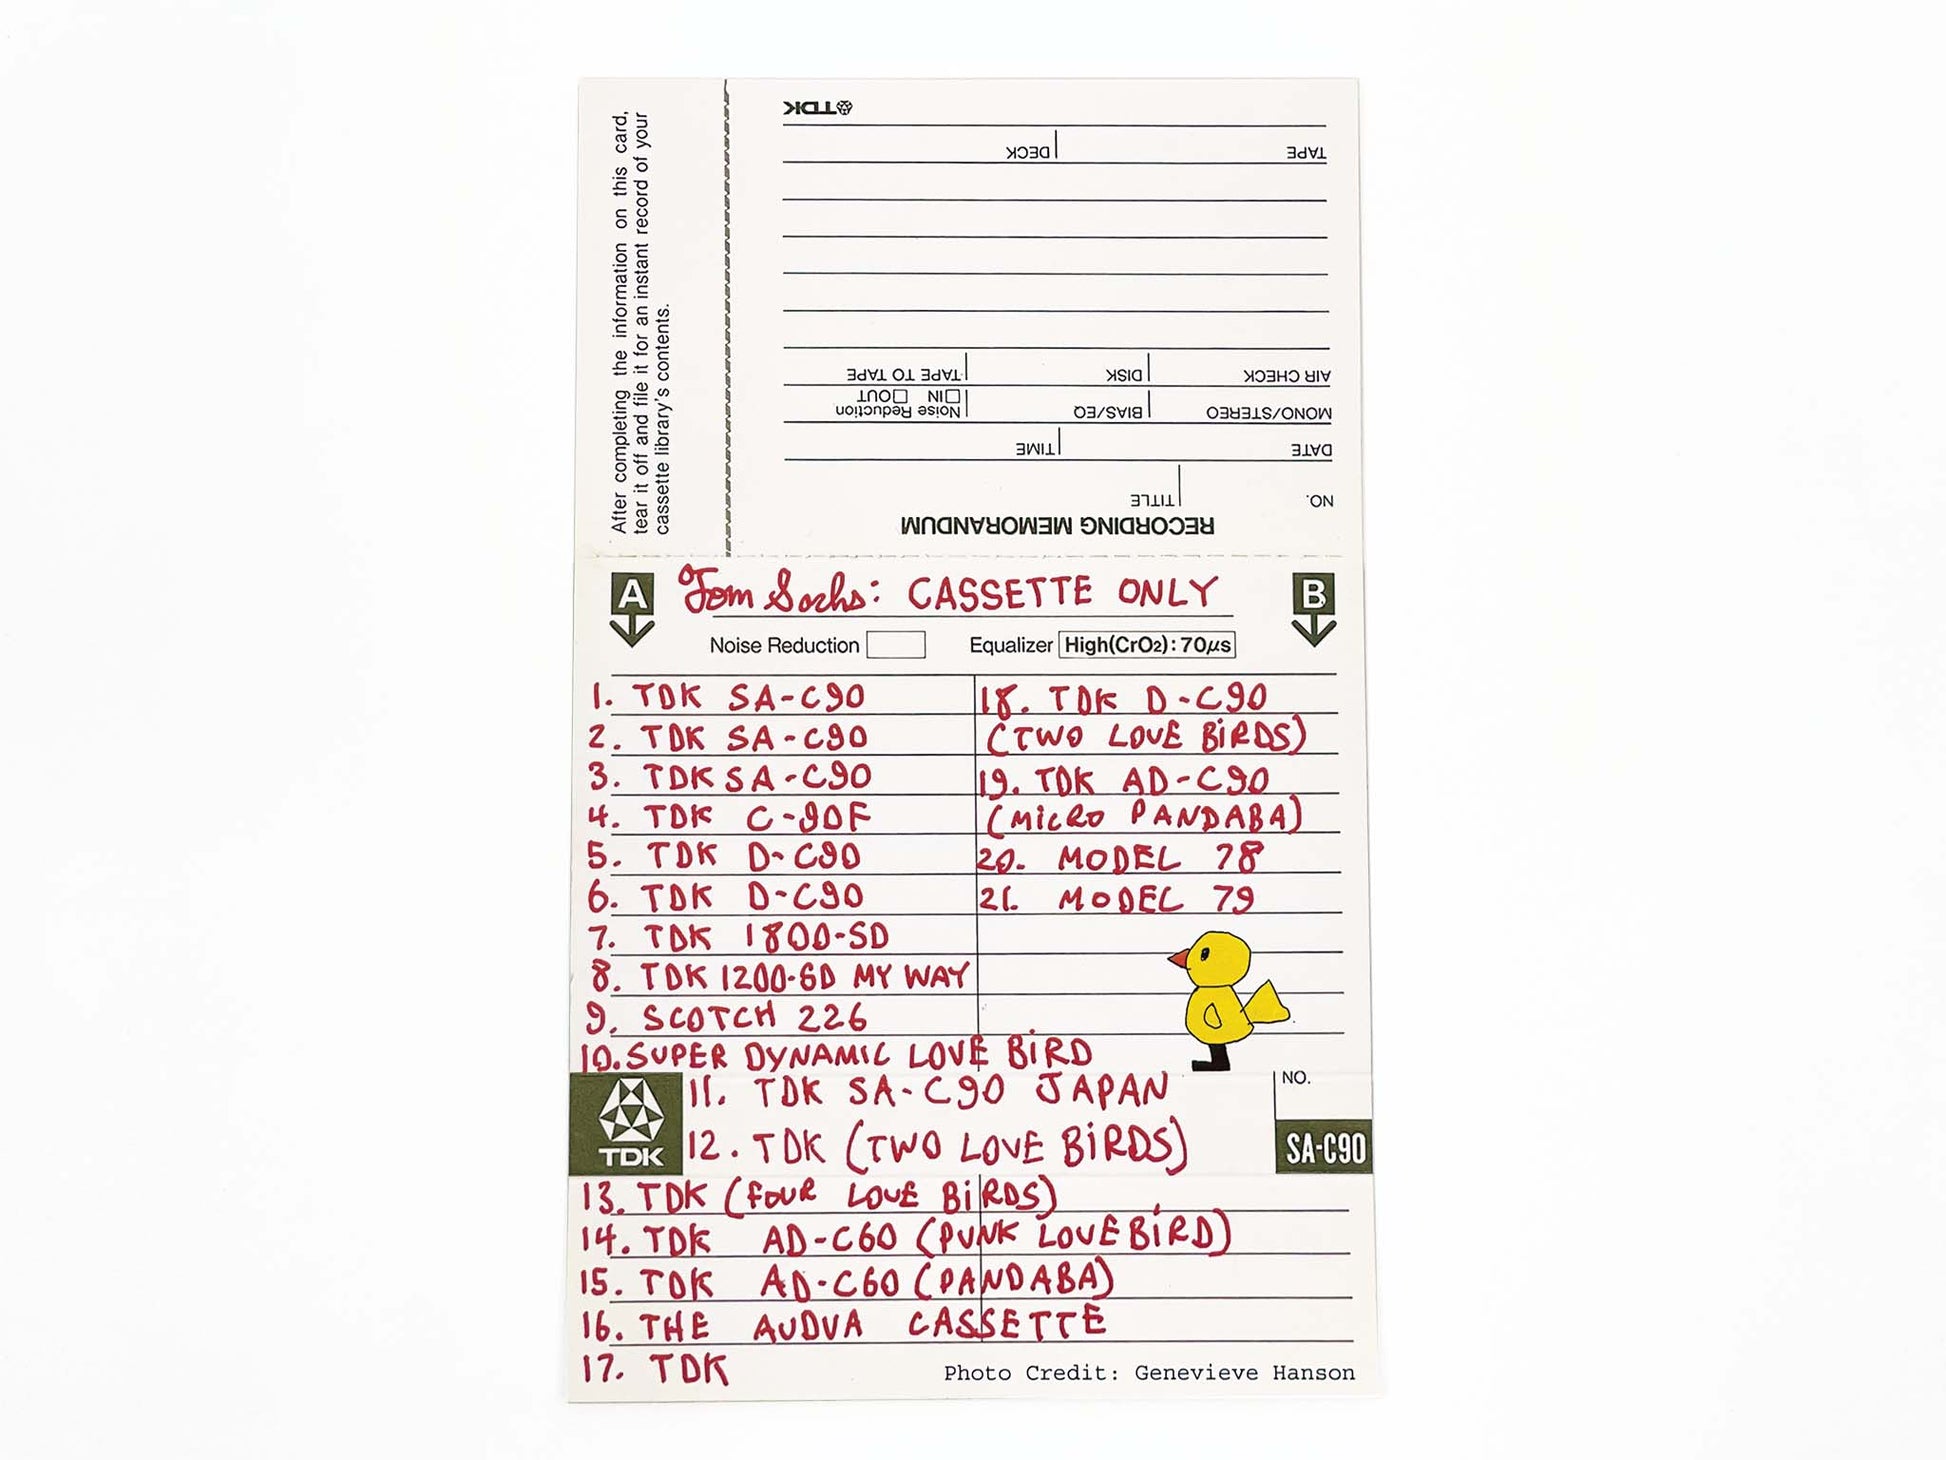 After completing the information on this card,
tear it off and file it for an instant record of your
cassette library's contents.
RECORDING MEMORANDUM
NO. TITLE
DATE TIME
MONO/STEREO BIAS/EQ Noise Reduction IN OUT
AIR CHECK DISK TAPE TO TAPE
TAPE DECK
TDK
A Tom Sachs: CASSETTE ONLY B
Noise Reduction Equalizer High(CrO2): 70μs
1. TDK SA-C90
2. TDK SA-C90
3. TDK SA-C90
4. TDK C-90F
5. TDK D-C90
6. TDK D-C90
7. TDK 1800-SD
8. TDK 1200-SD MY WAY
9. SCOTCH 226
10. SUPER DYNAMIC LOVE BiRD
11. TDK SA-C90 JAPAN
12. TDK (TWO LOVE BiRDS)
13. TDK (FOUR LOVE BiRDS)
14. TDK AD-C60 (PUNK LOVEBiRD)
15. TDK AD-C60 (PANDABA)
16. THE AUDVA CASSETTE
17. TDK
18. TDK D-C90
(TWO LOVE BiRDS)
19. TDK AD-C90
(MiCRO PANDABA)
20. MODEL 78
21. MODEL 79
TDK
NO.
SA-C90
Photo Credit: Genevieve Hanson